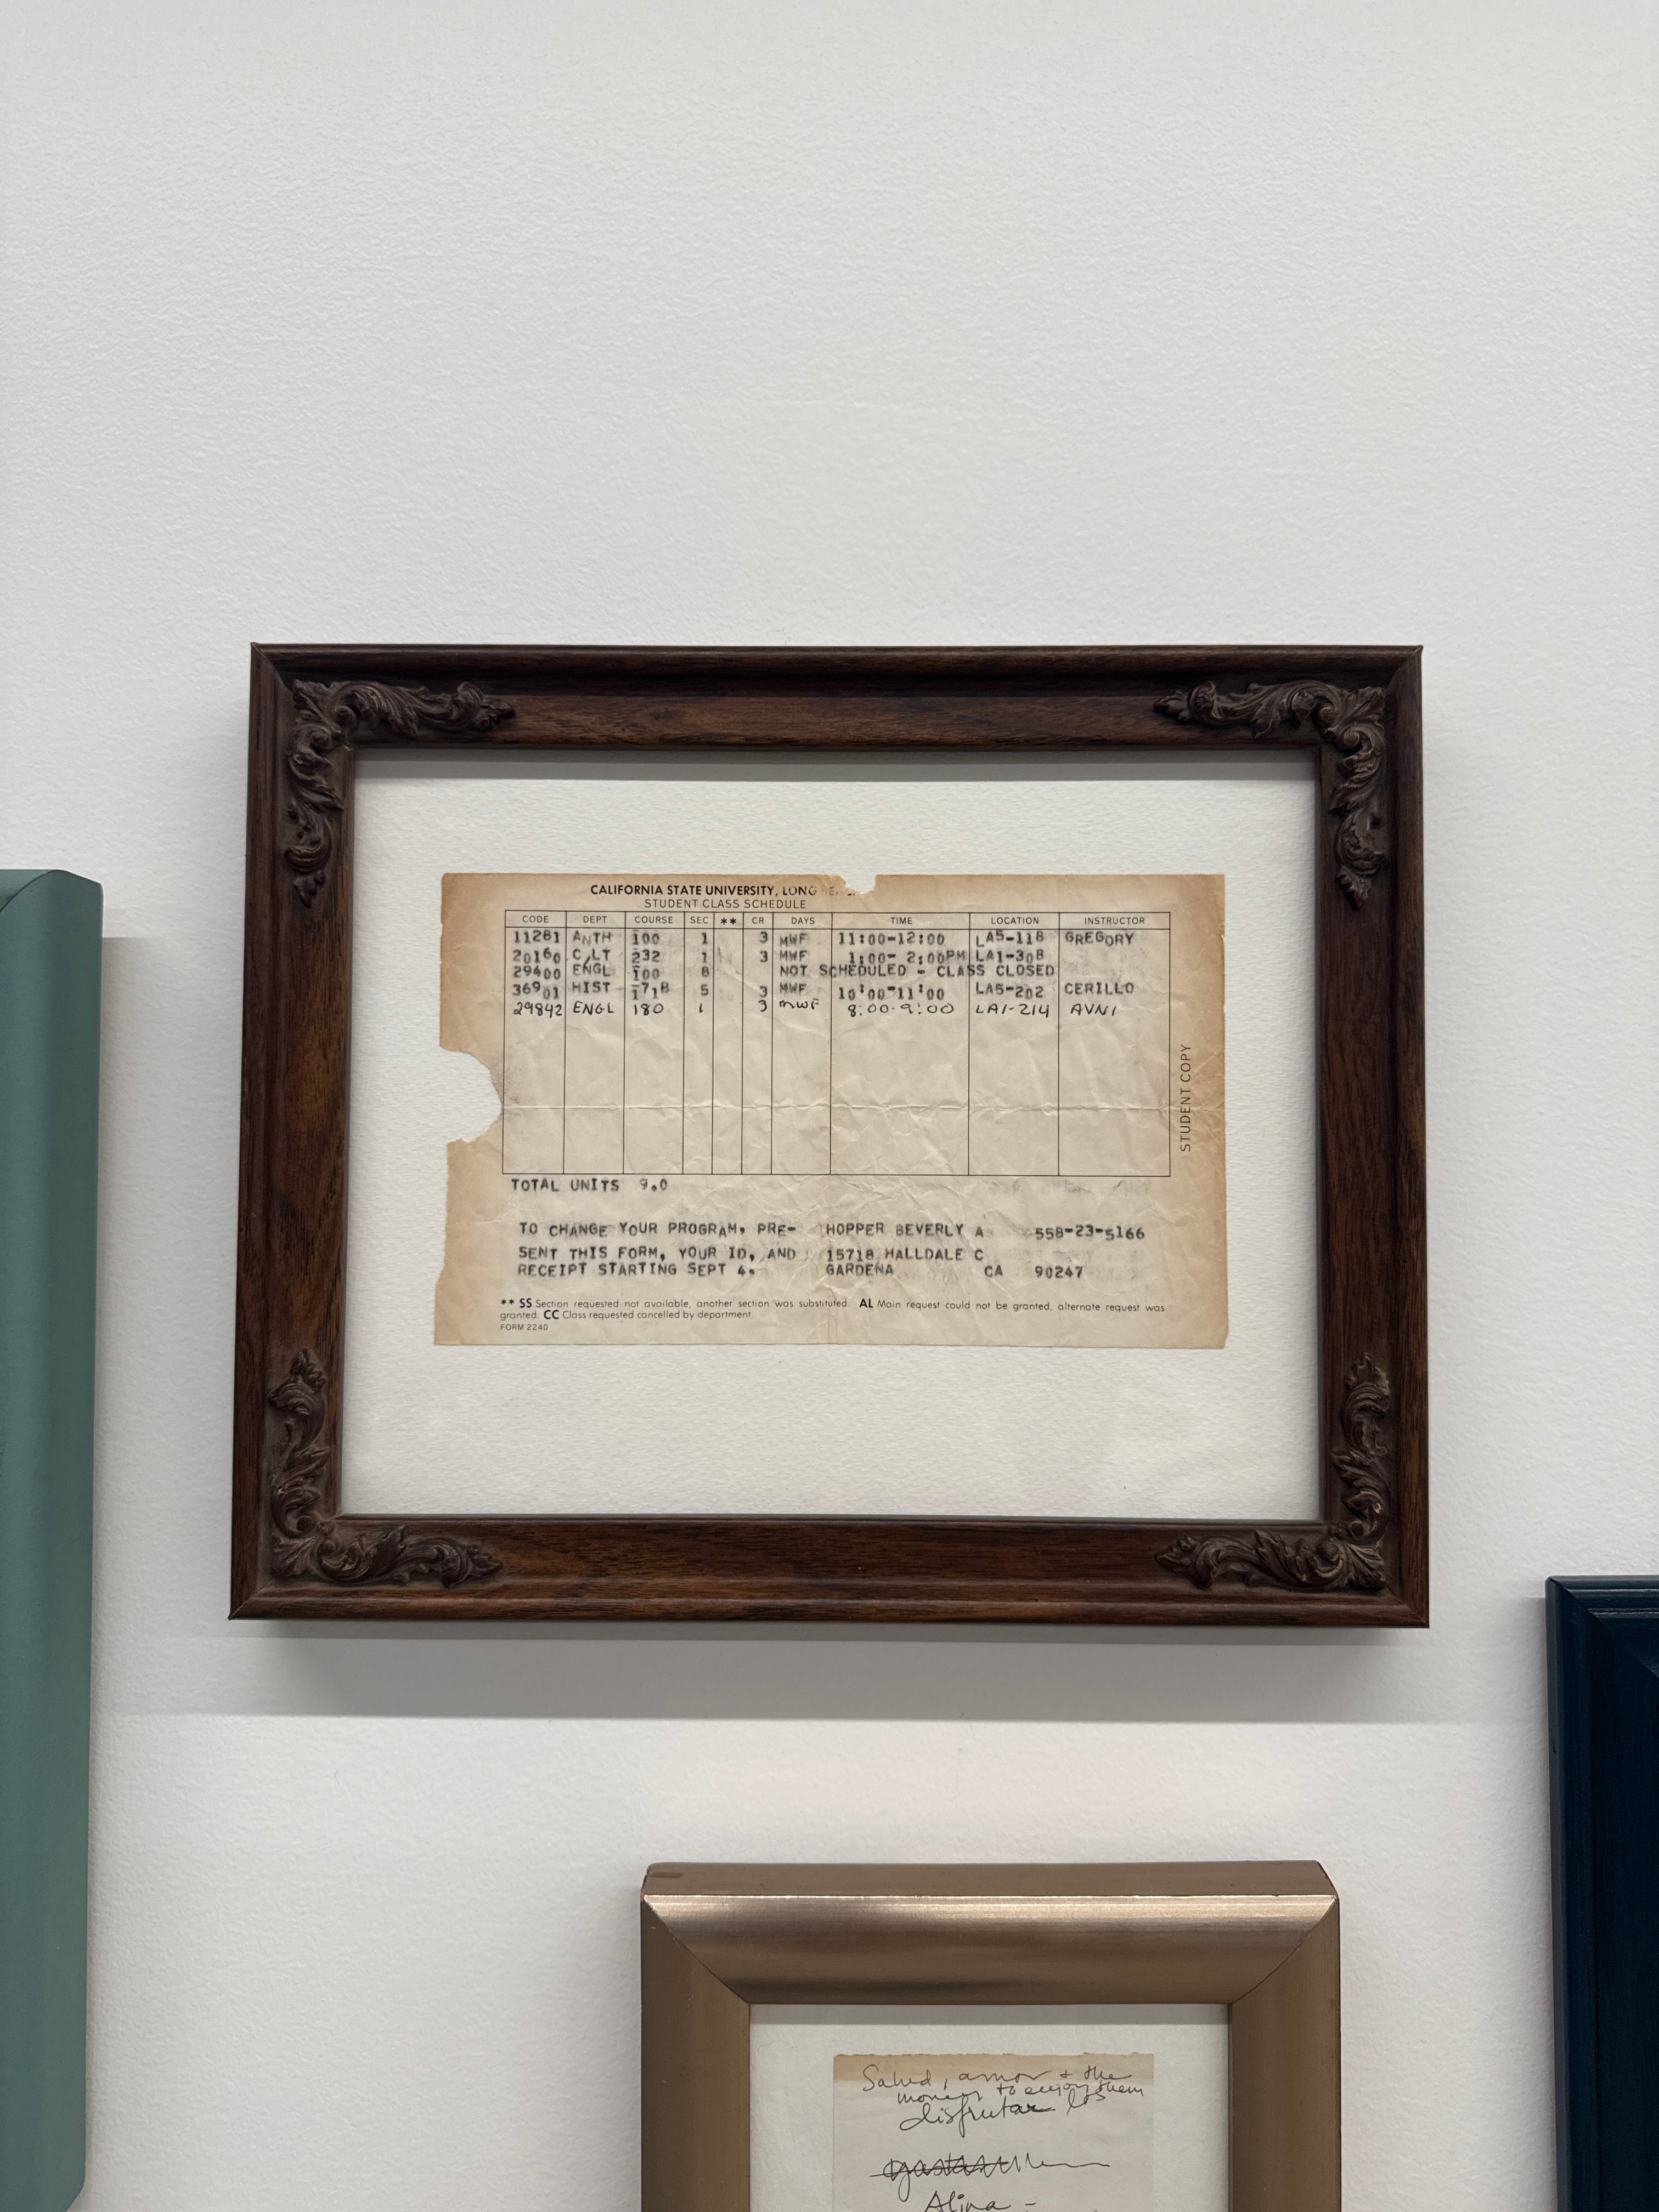 CALIFORNIA STATE UNIVERSITY, LONG
STUDENT CLASS SCHEDULE
CODE DEPT COURSE SEC ** CR DAYS TIME LOCATION INSTRUCTOR
11281 ANTH 100 1 3 MWF 11:00-12:00 LA5-118 GREGORY
20160 C/LT 232 1 3 MWF 1:00- 2:00PM LA1-308
29400 ENGL 100 8 NOT SCHEDULED - CLASS CLOSED
36901 HIST 171B 5 3 MWF 10:00-11:00 LA5-202 CERILLO
29842 ENGL 180 1 3 MWF 8:00-9:00 LA1-214 AVNI
STUDENT COPY
TOTAL UNITS 9.0
TO CHANGE YOUR PROGRAM, PRE- HOPPER BEVERLY A 558-23-5166
SENT THIS FORM, YOUR ID, AND 15718 HALLDALE C
RECEIPT STARTING SEPT 4. GARDENA CA 90247
** SS Section requested not available, another section was substituted. AL Main request could not be granted, alternate request was
granted. CC Class requested cancelled by department.
FORM 2240
Salud, amor + the
money to enjoy them
disfrutar los
Alina -